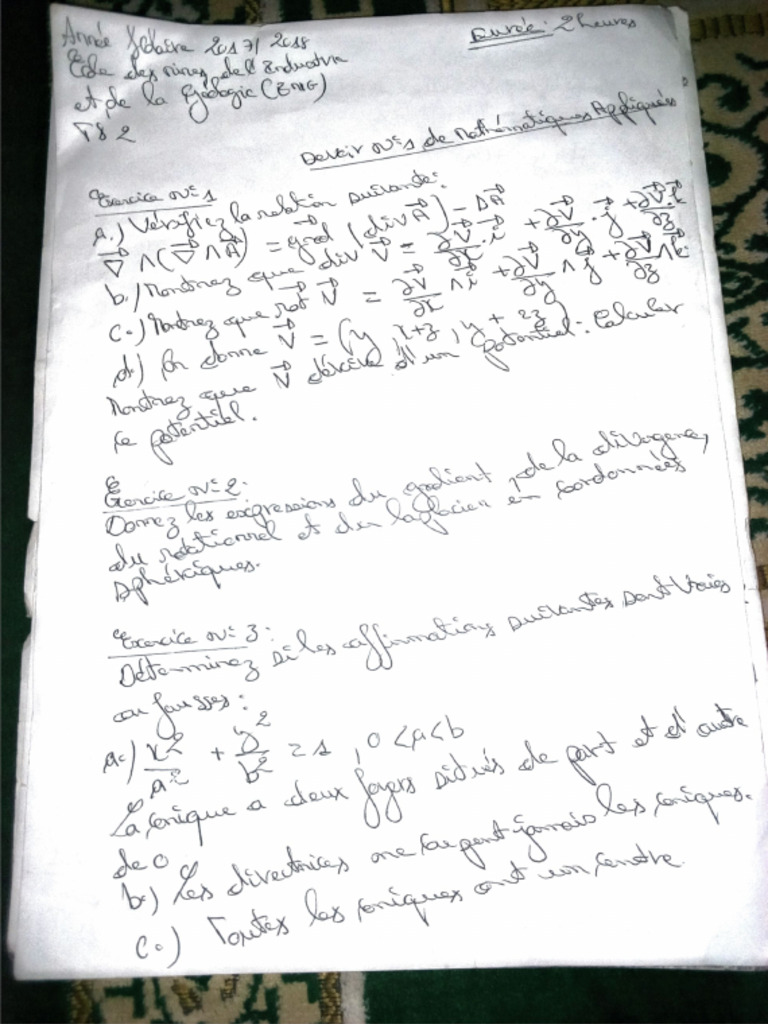 Année Scolaire 2017/2018
Durée: 2 heures
École des mines de l'Industrie
et de la Géologie (EMIG)
TS 2
Devoir N°1 de Mathématiques Appliquées
Exercice N°1
a.) Vérifiez la relation suivante:
∇ ∧ (∇ ∧ A) = grad (div A) - ΔA
b.) Montrez que div V = ∂V/∂x . i + ∂V/∂y . j + ∂V/∂z . k
c.) Montrez que rot V = ∂V/∂x ∧ i + ∂V/∂y ∧ j + ∂V/∂z ∧ k
d.) On donne V = (y, x+z, y + 2z)
Montrez que V dérive d'un potentiel. Calculer
ce potentiel.
Exercice N°2:
Donnez les expressions du gradient, de la divergence,
du rotationnel et du laplacien en coordonnées
sphériques.
Exercice N° 3:
Déterminez si les affirmations suivantes sont vraies
ou fausses:
a.) x²/a² + y²/b² = 1, 0 < a < b
La conique a deux foyers situés de part et d'autre
de O
b.) Les directrices ne coupent jamais les coniques.
c.) Toutes les coniques ont un centre.